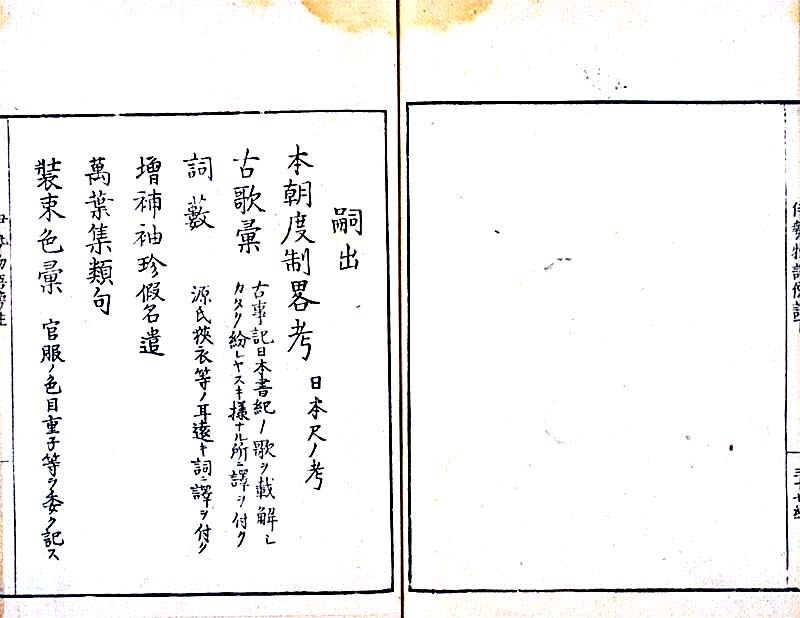 嗣出
本朝度制畧考 日本尺ノ考
古歌彙 古事記日本書紀ノ歌ヲ載解シ
カタク紛レヤスキ様ナル所ニ譯ヲ付ク
詞藪 源氏狹衣等ノ耳遠キ詞ニ譯ヲ付ク
増補袖珍假名遣
萬葉集類句
装束色彙 官服ノ色目重子等ヲ委ク記ス